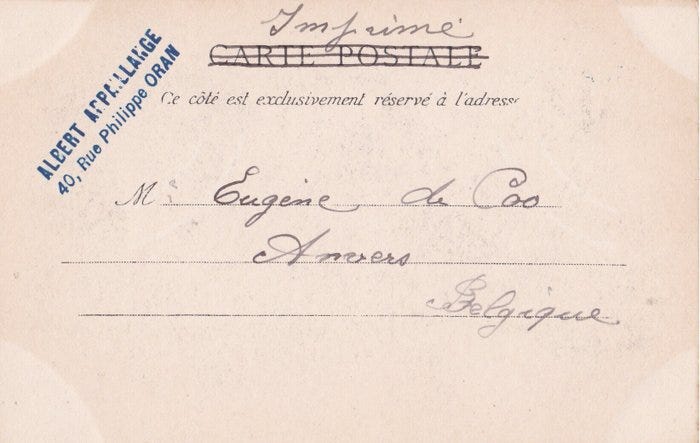 Imprimé
CARTE POSTALE
Ce côté est exclusivement réservé à l'adresse
ALBERT
40, Rue Philippe ORAN
M Eugène de Coo
Anvers
Belgique